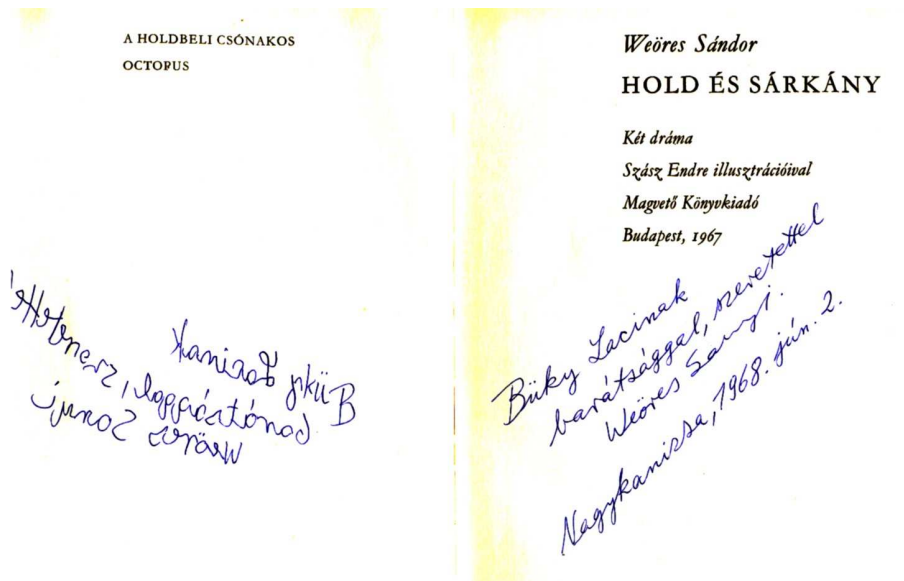 A HOLDBELI CSÓNAKOS
OCTOPUS
Büky Lacinak
barátsággal, szeretettel
Weöres Sanyi
Weöres Sándor
HOLD ÉS SÁRKÁNY
Két dráma
Szász Endre illusztrációival
Magvető Könyvkiadó
Budapest, 1967
Büky Lacinak
barátsággal, szeretettel
Weöres Sanyi.
Nagykanizsa, 1968. jún. 2.